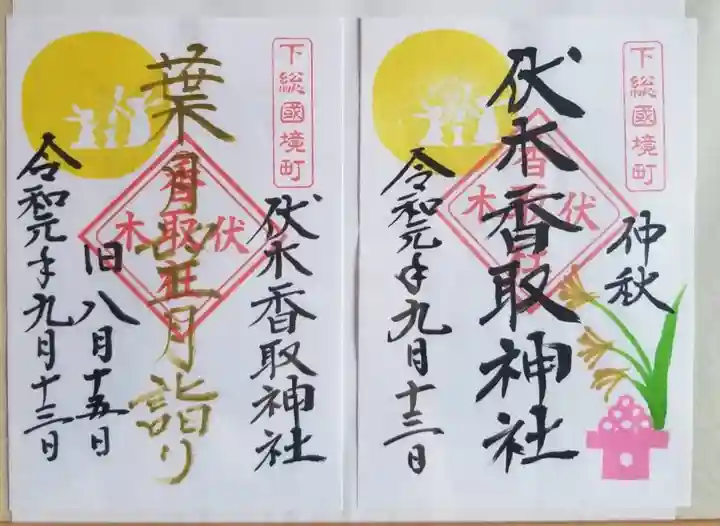 下総國境町
仲秋
伏木香取神社
伏木
香取社
令和元年九月十三日
下総國境町
伏木香取神社
葉月望月詣り
伏木
香取社
旧八月十五日
令和元年九月十三日